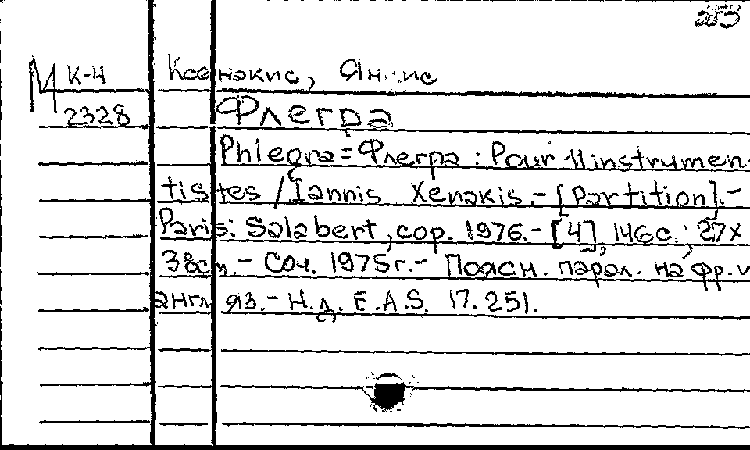 203
М К-4 Ксенакис, Яннис
2328 Флегра
Phlegra = Флегра : Pour 11 instrumen-
tistes / Iannis Xenakis. - [Partition]. -
Paris: Salabert, cop. 1976. - [4], 146с.; 27х
38см. - Соч. 1975г. - Поясн. парал. на фр. и
англ яз. - Н.д. E.A.S. 17.251.